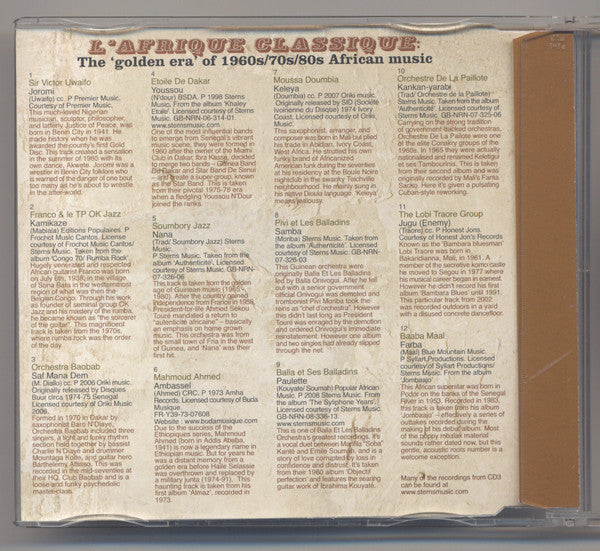 L'AFRIQUE CLASSIQUE:
The 'golden era' of 1960s/70s/80s African music
1
Sir Victor Uwaifo
Joromi
(Uwaifo) cc. P Premier Music.
Courtesy of Premier Music.
This much-loved Nigerian
musician, sculptor, philosopher,
and latterly Justice of Peace, was
born in Benin City in 1941. He
made history when he was
awarded the country's first Gold
Disc. This track created a sensation
in the summer of 1965 with its
own dance, Akwete. Joromi was a
wrestler in Benin City folklore who
is warned of the danger of one bout
too many as he's about to wrestle
in the after-world.
2
Franco & le TP OK Jazz
Kamikaze
(Mabiala) Editions Populaires. P
Frochot Music Cantos. License
courtesy of Frochot Music Cantos/
Sterns Music. Taken from the
album 'Congo 70/ Rumba Rock'.
Hugely venerated and respected
African guitarist Franco was born
on July 6th, 1938, in the village
of Sona Bata in the westernmost
region of what was then the
Belgian Congo. Through his work
as founder of seminal group OK
Jazz and his mastery of the rumba,
he became known as "the sorcerer
of the guitar". This magnificent
track is taken from the 1970s,
where rumba rock was the order
of the day.
3
Orchestra Baobab
Saf Mana Dem
(M. Diallo) cc. P 2006 Oriki music.
Originally released by Disques
Buur circa 1974-75 Senegal
Licensed courtesy of Oriki Music
2006.
Formed in 1970 in Dakar by
saxophonist Baro N'Diaye,
Orchestra Baobab included three
singers, a tight and funky rhythm
section held together by bassist
Charlie N'Diaye and drummer
Mountaga Koite, and guitar hero
Barthelemy Attisso. This was
recorded in the mid-seventies at
their HQ, Club Baobab and is a
loose and funky psychedelic
master-class.
4
Etoile De Dakar
Youssou
(N'dour) BSDA. P 1998 Sterns
Music. From the album 'Khaley
Etoile'. Licensed courtesy of Sterns
Music. GB-NRN-06-314-01
www.sternsmusic.com
One of the most influential bands
to emerge from Senegal's vibrant
music scene, they were formed in
1960 after the owner of the Miami
Club in Dakar, Ibra Kassé, decided
to merge two bands – Guinea Band
De Dakar and Star Band De Senui –
and create a super-group, known
as the Star Band. This is taken
from their pivotal 1975-78 era
when a fledgling Youssou N'Dour
joined the ranks.
5
Soumbory Jazz
Nana
(Trad/ Soumbory Jazz) Sterns
Music.
P Sterns Music. Taken from the
album 'Authenticité'. Licensed
courtesy of Sterns Music. GB-NRN-
07-332-06
This track is taken from the golden
age of Guinean music (1965-
1980). After the country gained
independence from France in 1958,
President-for-life Ahmed Sékou
Touré mandated a return to
"autenticité africaine" – basically
an emphasis on home grown
music. This orchestra was from
the small town of Fria in the west
of Guinea, and 'Nana' was their
first hit.
6
Mahmoud Ahmed
Ambassel
(Ahmed) CRC. P 1973 Amha
Records. Licensed courtesy of Buda
Musique.
FR-Y39-73-07608
Website : www.budamusique.com
Due to the success of the
Ethiopiques series, Mahmoud
Ahmed (born in Addis Ababa,
1941) is now a legendary name in
Ethiopian music. But for years he
was a distant memory from a
golden era before Haile Selassie
was overthrown and replaced by
a military junta (1974-91). This
haunting track is taken from his
first album 'Almaz', recorded in
1973.
7
Moussa Doumbia
Keleya
(Doumbia) cc. P 2007 Oriki music.
Originally released by SID (Société
Ivoirienne du Disque) 1974 Ivory
Coast. Licensed courtesy of Oriki
Music.
This saxophonist, arranger, and
composer was born in Mali but plied
his trade in Abidjan, Ivory Coast,
West Africa. He thrusted his own
funky brand of Africanized
American funk during the seventies
at his residency at the Boule Noire
nightclub in the swanky Teichville
neighbourhood. He mainly sung in
his native Dioula language. 'Keleya'
means jealousy.
8
Pivi et Les Balladins
Samba
(Moriba) Sterns Music. Taken from
the album 'Authenticité'. Licensed
courtesy of Sterns Music. GB-NRN-
07-325-03
This Guinean orchestra were
originally Balla Et Les Balladins
led by Balla Onivogui. After he fell
out with a senior government
official Onivogui was demoted and
trombonist Pivi Moriba took the
reins as "chef d'orchestra". However
this didn't last long as President
Touré was enraged by the demotion
and ordered Onivogui's immediate
reinstatement. However one album
and two singles had already slipped
through the net.
9
Balla et Ses Balladins
Paulette
(Kouyaté/ Soumah) Popular African
Music. P 2008 Sterns Music. From
the album 'The Sylphone Years'.
Licensed courtesy of Sterns Music.
GB-NRN-08-336-13
www.sternsmusic.com
This is one of Balla Et Les Balladins
Orchestra's greatest recordings. It's
a vocal duet between Manfila 'Soba'
Kanté and Emile Soumah, and is a
story of love corrupted by loss in
confidence and distrust. It's taken
from their 1980 album 'Objectif
perfection' and features the searing
guitar work of Ibrahima Kouyaté.
10
Orchestre De La Paillote
Kankan-yarabi
(Trad/ Orchestre de la Paillote)
Sterns Music. Taken from the album
'Authenticité'. Licensed courtesy of
Sterns Music. GB-NRN-07-325-06
Carrying on the strong tradition
of government-backed orchestras,
Orchestre De La Paillote were one
of the elite Conakry groups of the
1960s. In 1965 they were actually
nationalised and renamed Keletigui
et ses Tambourinis. This is taken
from their second album and was
originally recorded by Mali's Fanta
Sacko. Here it's given a pulsating
Cuban-style reworking.
11
The Lobi Traore Group
Jugu (Enemy)
(Traore) cc. P Honest Jons.
Courtesy of Honest Jon's Records
Known as the 'Bambara bluesman'
Lobi Traore was born in
Bakaridianna, Mali, in 1961. A
member of the secretive komo caste
he moved to Segou in 1977 where
his musical career began in earnest.
However he didn't record his first
album 'Bambara Blues' until 1991.
This particular track from 2002
was recorded outdoors in a yard
with a disused concrete drainpipe.
12
Baaba Maal
Farba
(Maal) Blue Mountain Music.
P Syllart Productions. Licensed
courtesy of Syllart Productions/
Sterns Music. From the album
'Jombaajo'.
This African superstar was born in
Podor on the banks of the Senegal
River in 1953. Recorded from 1983,
this track is taken from his album
'Jombaajo' - effectively a series of
outtakes recorded during the
making of his debut album. Most
of the poppy mbalax material
sounds rather dated now, but this
gentle, acoustic roots number is a
welcome exception.
Many of the recordings from CD3
can be found at
www.sternsmusic.com